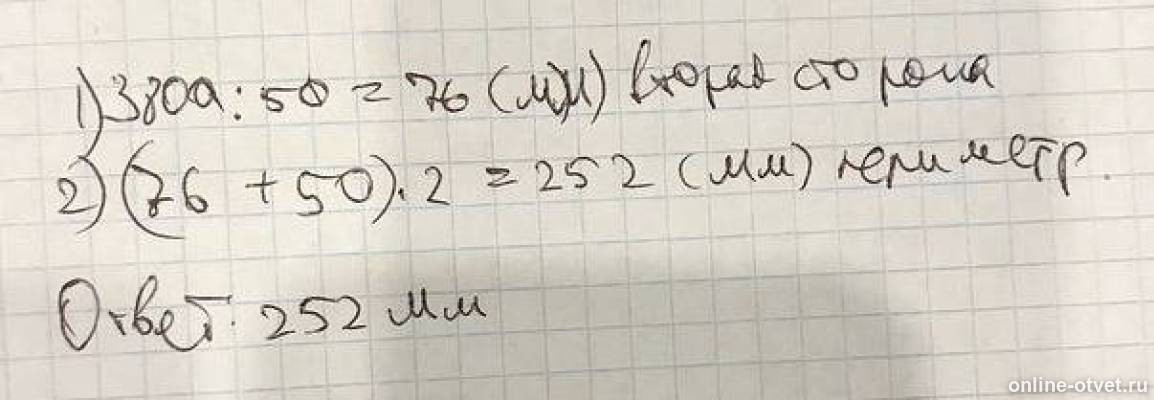 1) 3800 : 50 = 76 (мм) вторая сторона
2) (76 + 50) · 2 = 252 (мм) периметр.
Ответ: 252 мм
online-otvet.ru